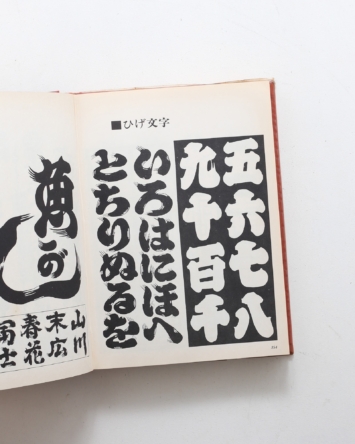 ■ひげ文字
五六七八
九十百千
いろはにほへ
とちりぬるを
山川
末広
春花
富士